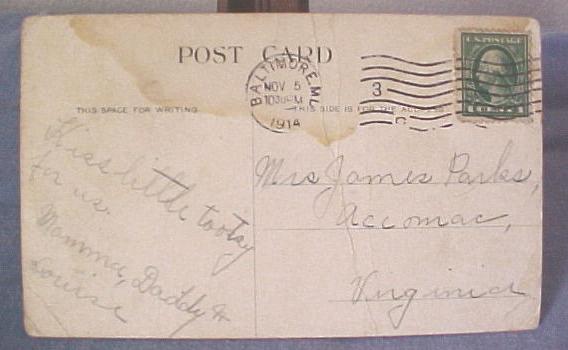 POST CARD
U.S. POSTAGE
BALTIMORE, MD.
NOV 5
1914
3
THIS SPACE FOR WRITING
THIS SIDE IS FOR THE ADDRESS
Kiss little tootsy
for us.
Mamma, Daddy &
Louise
Mrs James Parks,
Accomac,
Virginia